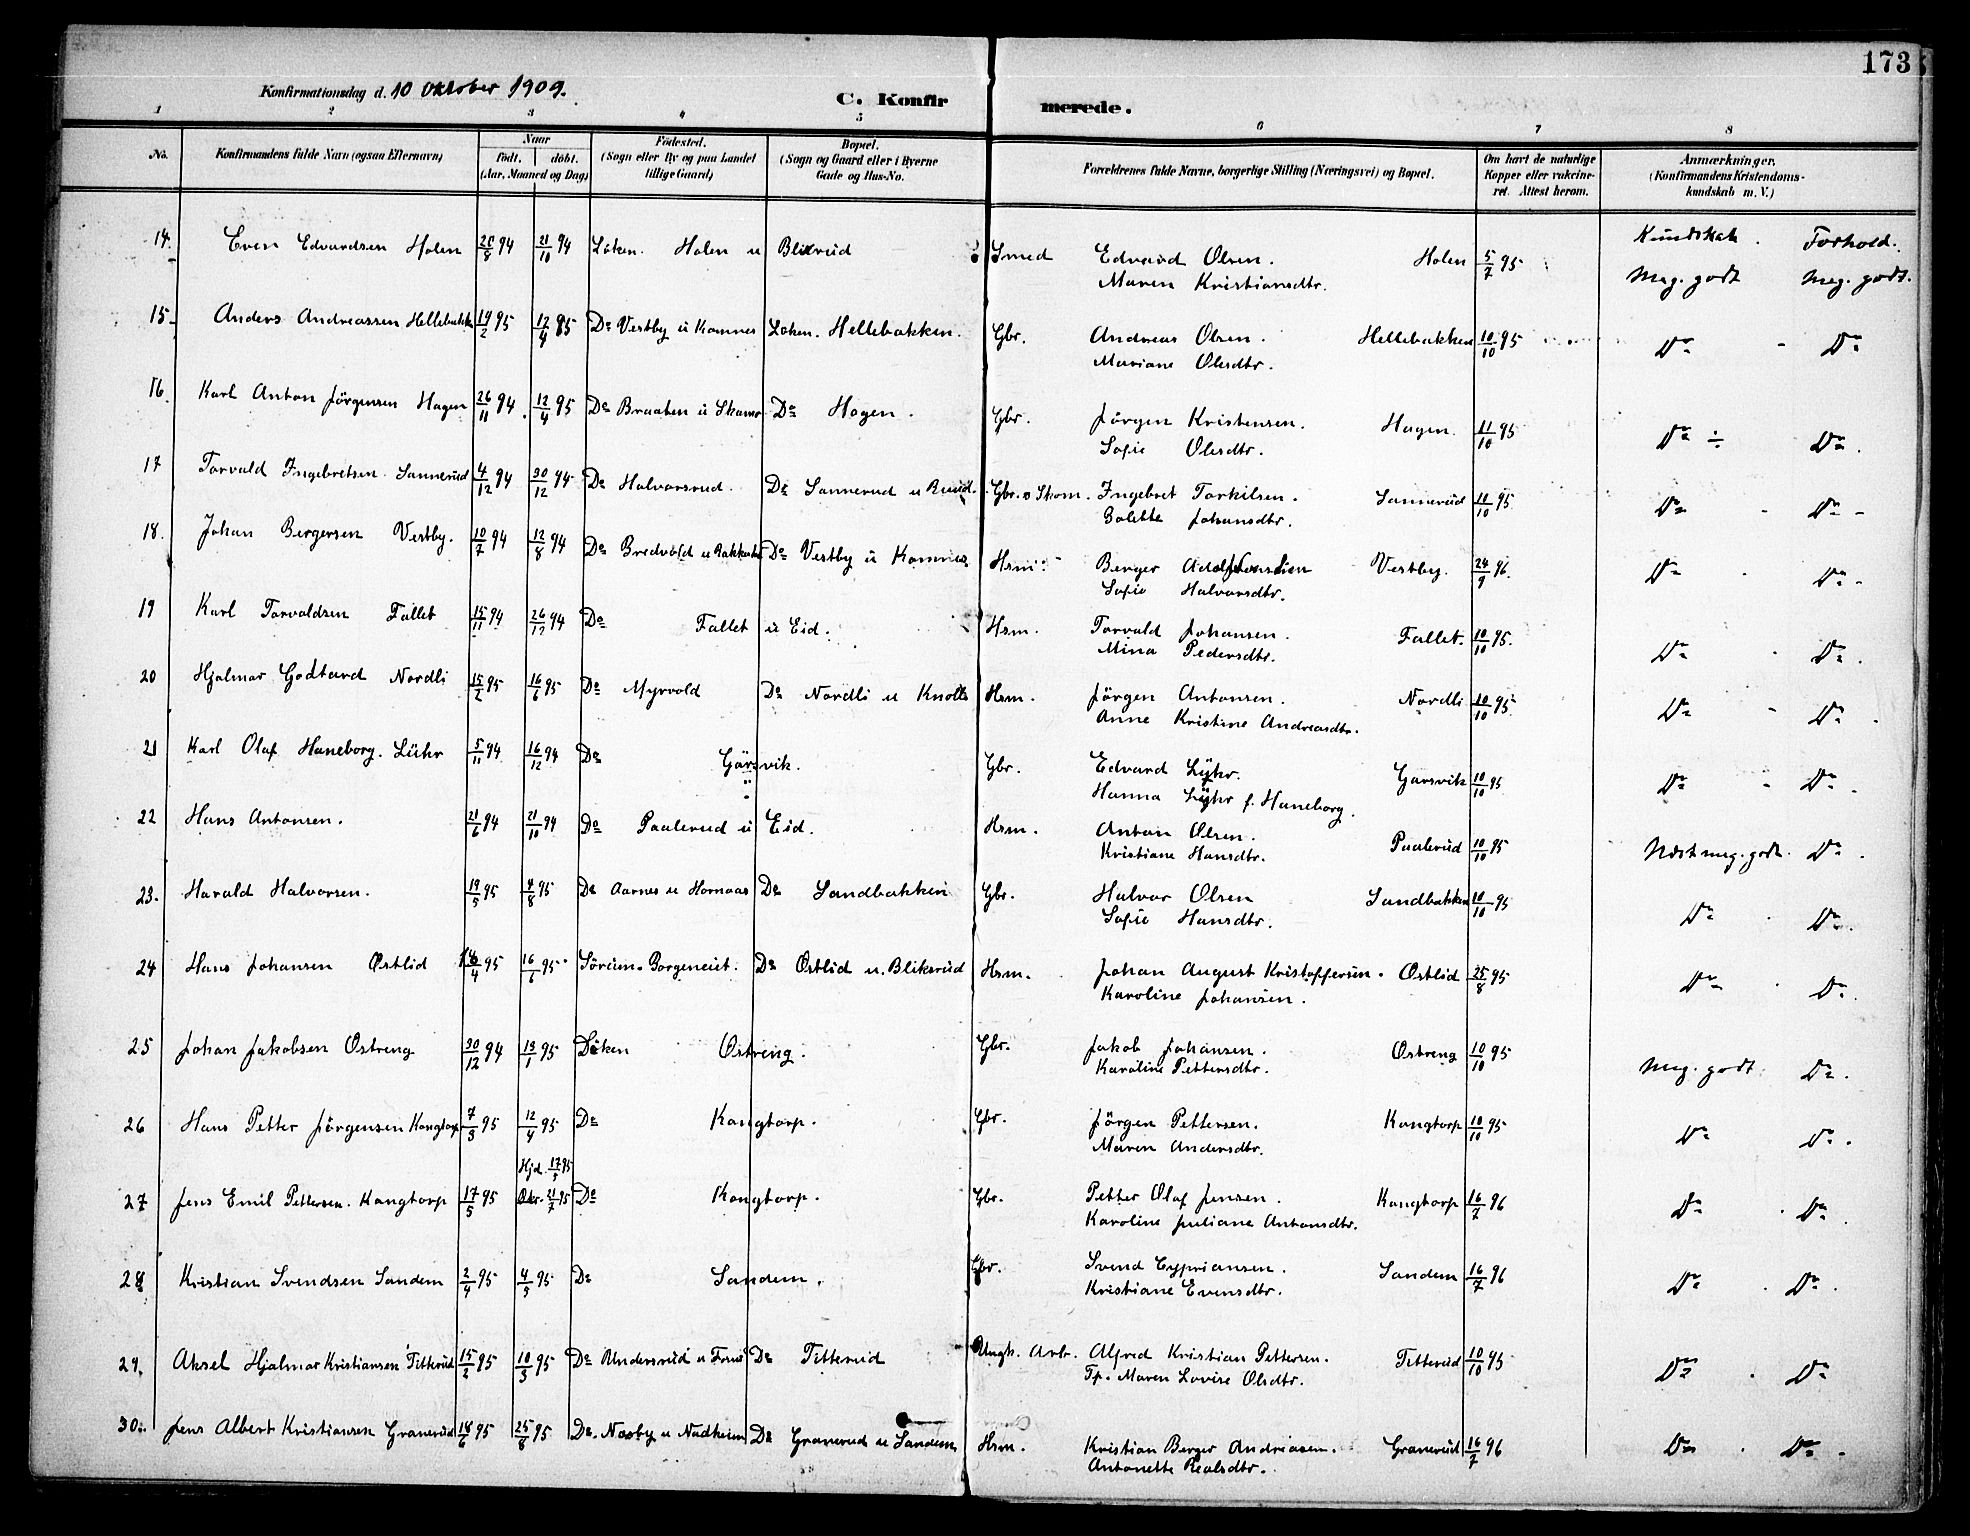 173
Konfirmationsdag d. 10 Oktober 1909.
C. Konfirmerede.
1 2 3 4 5 6 7 8
No. Konfirmandens fulde Navn (ogsaa Efternavn) Naar født. døbt. (Aar, Maaned og Dag) Fødested. (Sogn eller By og paa Landet tillige Gaard) Bopæl. (Sogn og Gaard eller i Byerne Gade og Hus-No. Forældrenes fulde Navne, borgerlige Stilling (Næringsvei) og Bopæl. Om havt de naturlige Kopper eller vakcineret. Attest herom. Anmærkninger. (Konfirmandens Kristendomskundskab m. V.)
Kundskab. Forhold.
14. Even Edvardsen Holen 25/8 94 21/10 94 Løken. Holen u Blixrud Smed Edvard Olsen. Holen 5/7 95 Meg. godt Meg. godt.
Maren Kristiansdtr.
15. Anders Andreassen Hellebakk 19/2 95 12/4 95 Do Vestby u Komnes Løken. Hellebakken. Gbr. Andreas Olsen. Hellebakken 10/10 95 Do - Do
Mariane Olesdtr.
16. Karl Anton Jörgensen Hagen 26/11 94. 12/4 95 Do Braaten u Do Hagen. Gbr. Jörgen Kristensen. Hagen. 11/10 95 Do ÷ Do.
Sofie Olesdtr.
17 Torvald Ingebretsen Sannerud 4/12 94 30/12 94 Do Halvorsrud. Do Sannerud u Ruud. Gbr. o Skom. Ingebret Torkilsen. Sannerud 10/10 95 Do - Do -
Bolette Johansdtr.
18. Johan Bergersen Vestby. 10/7 94 12/8 94 Do Do Vestby u Komnes Hsm. Berger Vestby. 24/9 96. Do Do -
Sofie Halvorsdtr.
19 Karl Torvaldsen Fallet 15/11 94 26/12 94 Do Fallet u Eid. Hsm. Torvald Johansen. Fallet. 10/10 95. Do Do.
Mina Pedersdtr.
20 Hjalmar Godtard Nordli 15/2 95 16/6 95 Do Myrvold Do Nordli u Knolls Hsm. Jörgen Antonsen. Nordli 10/10 95 Do - Do.
Anne Kristine Andreasdtr.
21 Karl Olaf Haneborg. Lühr 5/11 94 16/12 94 Do Garsvik. Gbr. Edvard Lÿhr. Garsvik 10/10 95 Do - Do.
Hanna Lÿhr f. Haneborg.
22 Hans Antonsen. 21/6 94 21/10 94 Do Paalerud u Eid. Hsm. Anton Olsen. Paalerud 10/10 95 Næst meg. godt. Do.
Kristiane Hansdtr.
23. Harald Halvorsen. 19/5 95 4/8 95 Do Aarnes u Hornaas Do Sandbakken Gbr. Halvor Olsen Sandbakken 10/10 95 Do Do.
Sofie Hansdtr.
24 Hans Johansen Østlid /4 95 16/6 95 Sörum. Borgeneiet. Do Østlid u. Bliksrud Hsm. Johan August Kristoffersen. Østlid 25/8 95 Do Do.
Karoline Johansen.
25 Johan Jakobsen Østreng 30/12 94 13/1 95 Løken Østreng. Gbr. Jakob Johansen. Østreng 10/10 95 Meg. godt. Do.
Karoline Pettersdtr.
26 Hans Petter Jörgensen Kongtorp 7/3 95 12/4 95 Do Kongtorp. Gbr. Jörgen Pettersen. Kongtorp 10/10 95 Do Do.
Maren Andersdtr.
Hjd. 17/5 95
27 Jens Emil Pettersen. Kongtorp 17/5 95 21/7 95 Do Kongtorp. Gbr. Petter Olaf Jensen. Kongtorp 16/7 96 Do. Do.
Karoline Juliane Antonsdtr.
28 Kristian Svendsen Sandem 2/4 95 4/5 95 Do Sandem. Gbr. Svend Cypriansen. Sandem 16/7 96 Do. Do.
Kristiane Evensdtr.
29. Aksel Hjalmar Kristiansen Titterud 15/2 95 10/3 95 Do Do Titterud Ungk. Arb. Alfred Kristian Pettersen. Titterud 10/10 95 Do. Do
Tp. Maren Lovise Olsdtr.
30. Jens Albert Kristiansen Granerud 18/6 95 25/8 95 Do. Nordby u Nadheim Do Granerud u Sandem Hsm. Kristian Berger Andreasen. Granerud 16/7 96 Do. Do.
Antonette